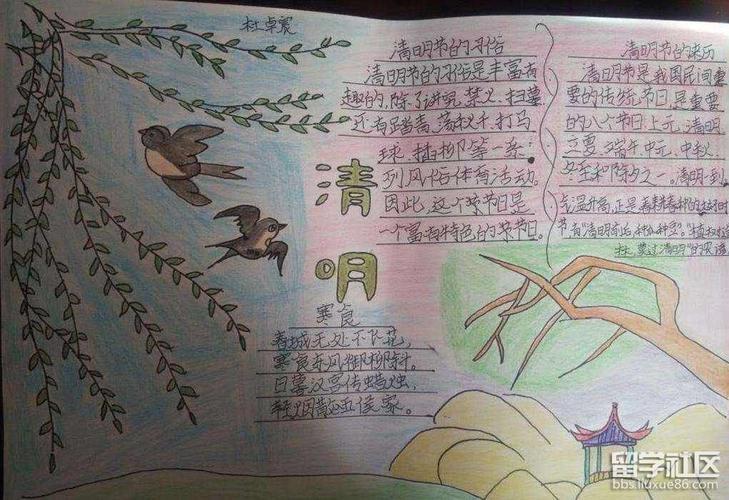 杜卓宸
清明节的习俗
清明节的习俗是丰富有
趣的,除了讲究禁火、扫墓
还有踏青、荡秋千、打马
球、插柳等一系
列风俗体育活动。
因此,这个节日是
一个富有特色的节日。
清明节的来历
清明节是我国民间重
要的传统节日,是重要
的八个节日上元、清明
立夏、端午、中元、中秋、
冬至和除夕之一。清明一到
气温升高,正是春耕春种的大好时
节,有"清明前后,种瓜种豆"。"植树造
林,莫过清明"的
清
明
寒食
春城无处不飞花,
寒食东风御柳斜。
日暮汉宫传蜡烛,
轻烟散五侯家。
留学社区
bbs.liuxue86.com